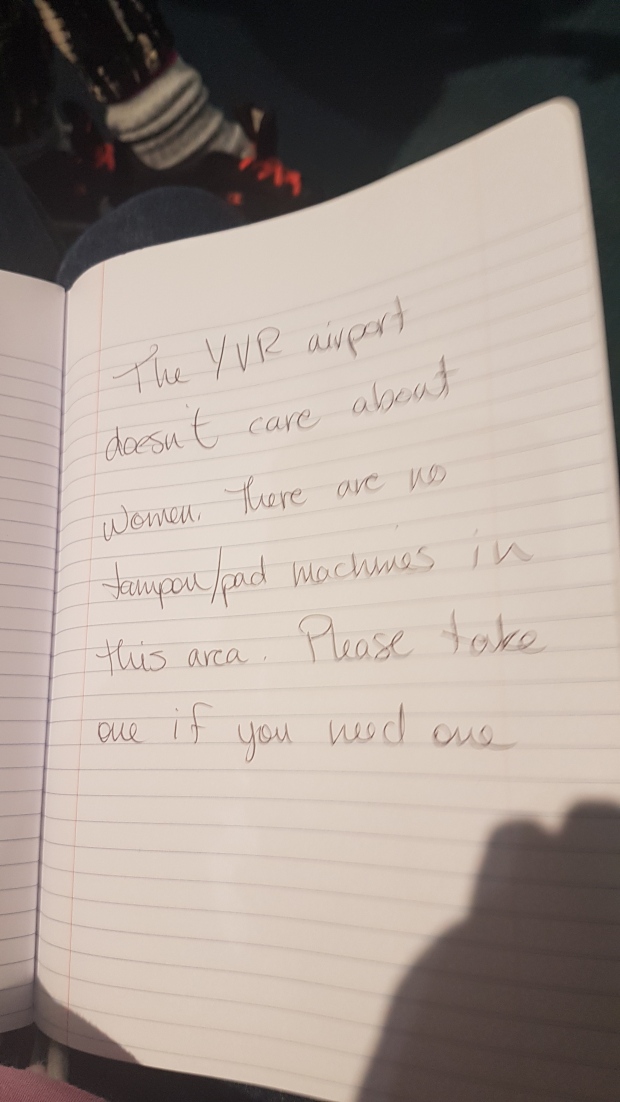 The YVR airport
doesn't care about
women. There are no
tampon/pad machines in
this area. Please take
one if you need one